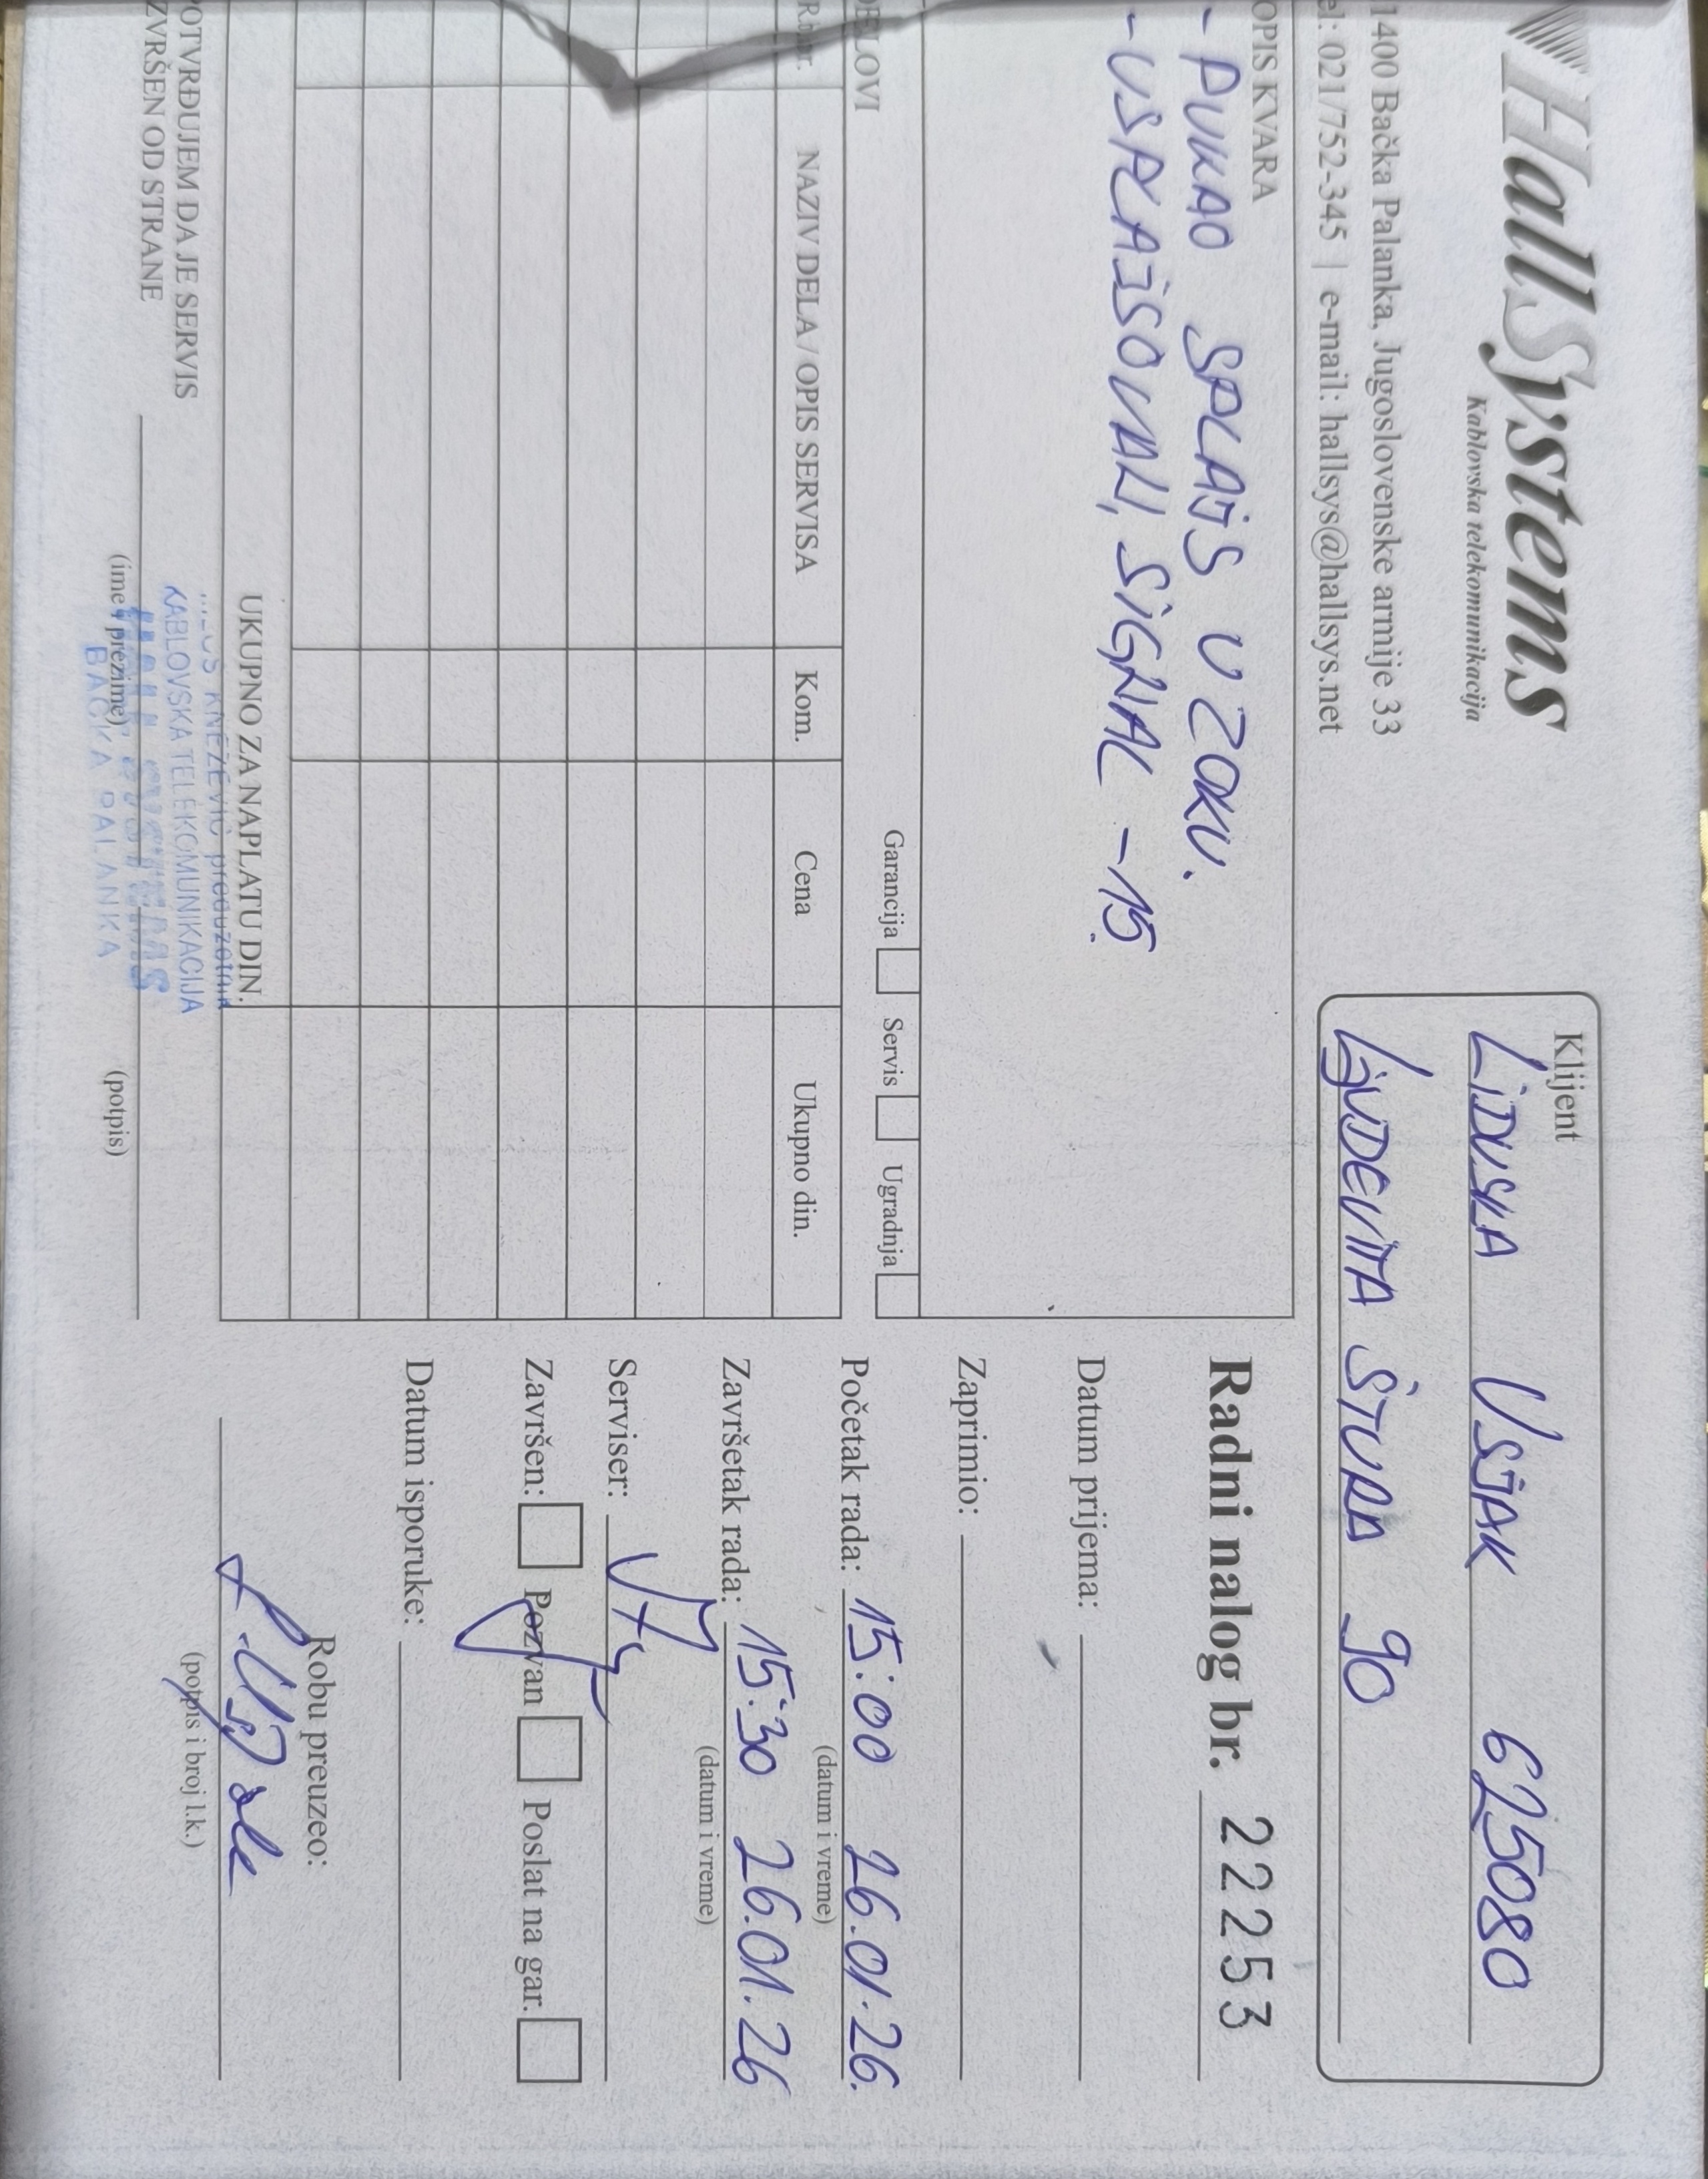 HallSystems
Kablovska telekomunikacija
1400 Bačka Palanka, Jugoslovenske armije 33
el: 021/752-345 | e-mail: hallsys@hallsys.net
Klijent
LiDUŠKA VSJAK 625080
LJUDEVITA ŠTURA 90
OPIS KVARA
- PUKAO SPLAJS U ZOKU.
- USPLAJSOVALI, SiGNAL -15
Radni nalog br. 22253
Datum prijema:
Zaprimio:
Početak rada: 15:00 26.01.26.
(datum i vreme)
Završetak rada: 15:30 26.01.26
(datum i vreme)
Serviser:
Završen: Pozvan Poslat na gar.
Datum isporuke:
Robu preuzeo:
(potpis i broj l.k.)
DELOVI
Garancija Servis Ugradnja
R.br. NAZIV DELA / OPIS SERVISA Kom. Cena Ukupno din.
UKUPNO ZA NAPLATU DIN.
OTVRĐUJEM DA JE SERVIS
ZVRŠEN OD STRANE
(ime i prezime) (potpis)
KNEŽEVIĆ preduzetnik
KABLOVSKA TELEKOMUNIKACIJA
HALL SYSTEMS
BAČKA PALANKA